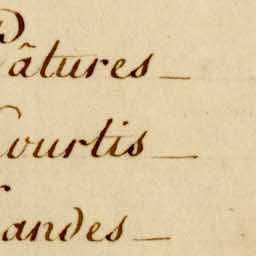 Pâtures _
Courtis _
Landes _